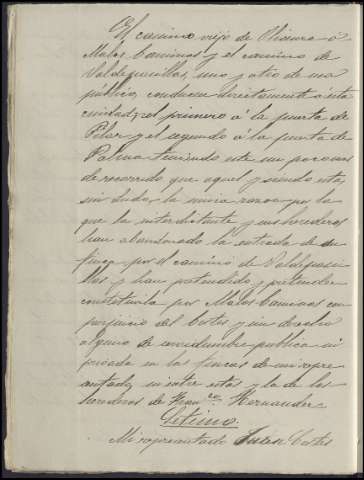 El camino viejo de Olivenza ó
Malos Caminos y el camino de
Valdepasillas, uno y otro de uso
público, conducen directamente á esta
ciudad, el primero á la puerta de
Pilar y el segundo á la puerta de
Palma teniendo este un poco mas
de recorrido que aquel y siendo esta,
sin duda, la única razon por la
que la interdictante y sus herederos
han abandonado la entrada de su
finca por el camino de Valdepasi-
llas y han pretendido y pretenden
constituirla por Malos Caminos con
perjuicio del Cortés y sin derecho
alguno de servidumbre publica ni
privada en las fincas de mi repre-
sentado, ni entre estas y la de los
herederos de Fran.co Hernandez
Setimo.
Mi representado Cortés